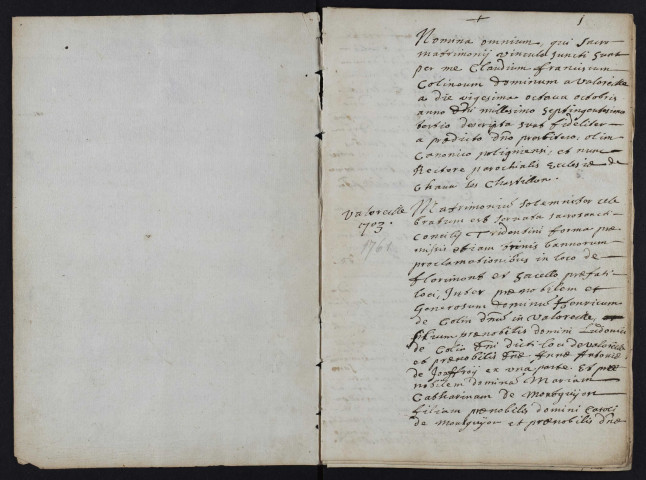 + 1
Nomina omnium, qui sacro
matrimonij vinculo juncti sunt
per me Claudium franciscum
Colineum dominum a valoreille
a die vigesima octava octobris
anno dni millesimo septingentesimo
tertio descripta sunt fideliter
a prædicto dno presbitero, olim
Canonico poligniensi, et nunc
Rectore parochialis Ecclesiæ de
Chaux les Chastillon.
valoreille
1703.
1761
Matrimonium solemniter cele
bratum est servata sacrosancti
Concilij Tridentini forma præ
missis etiam trinis bannorum
proclamationibus in loco de
florimont et sacello præfati
loci, Inter prænobilem et
Generosum dominum henricum
de Colin dnum in valoreille
filium prænobilis domini Ludovici
de Colin dni dicti loci de valoreille
et prænobilis dnæ Annæ Antoniæ
de Joffroy ex una parte. Et præ
nobilem dominam Mariam
Catharinam de Montguyon
filiam prænobilis domini Caroli
de Montguyon et prænobilis dnæ